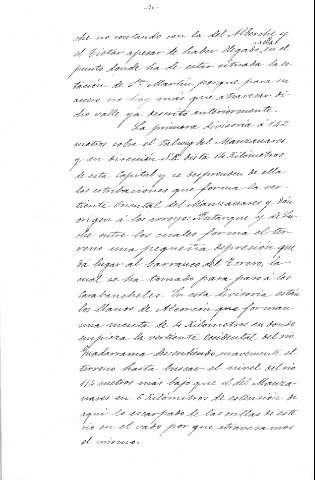 che no contando con la del Alberche y
el Tietar apesar de haber llegado, en el
alla
punto donde ha de estar situada la es-
tacion de Sn. Martin, porque para su
acceso no hay más que atravesar di-
cho valle ya descrito anteriormente.
La primera divisoria á 142
metros sobre el talweg del Manzanares
y en direccion S.E. dista 14 Kilómetros
de esta Capital y se desprenden de ella
las estribaciones que forma la ver-
tiente Oriental del Manzanares y dan
origen á los arroyos Butarque y de Lu-
che entre los cuales forma el ter-
reno una pequeña depresion que
da lugar al barranco del Zorero, la
cual se ha tomado para paso á los
Carabancheles. En esta divisoria están
los llanos de Alcorcón que forman
una meseta de 4 Kilómetros en donde
empieza la vertiente Occidental del rio
Guadarrama descendiendo suavemente el
terreno hasta buscar el nivel del rio
114 metros más bajo que el del Manza-
nares en 6 Kilómetros de extension de
aqui lo escarpado de las orillas de este
rio en el vado por que atravesamos
el mismo.